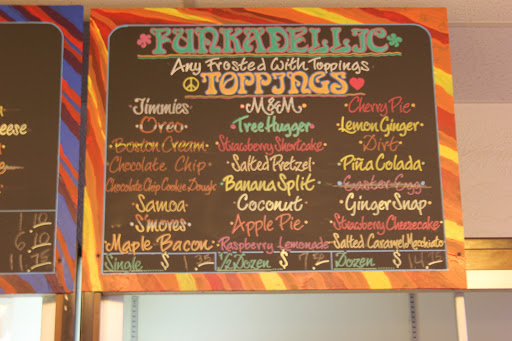 FUNKADELLIC
Any Frosted With Toppings
TOPPINGS
Jimmies
Oreo
Boston Cream
Chocolate Chip
Chocolate Chip Cookie Dough
Samoa
S'mores
Maple Bacon
M&M
Tree Hugger
Strawberry Shortcake
Salted Pretzel
Banana Split
Coconut
Apple Pie
Raspberry Lemonade
Cherry Pie
Lemon Ginger
Dirt
Piña Colada
Easter Egg
Ginger Snap
Strawberry Cheesecake
Salted Caramel Macchiato
Single $ 1.35 1/2 Dozen $ 7.50 Dozen $ 14.75
eese
1.10
6.10